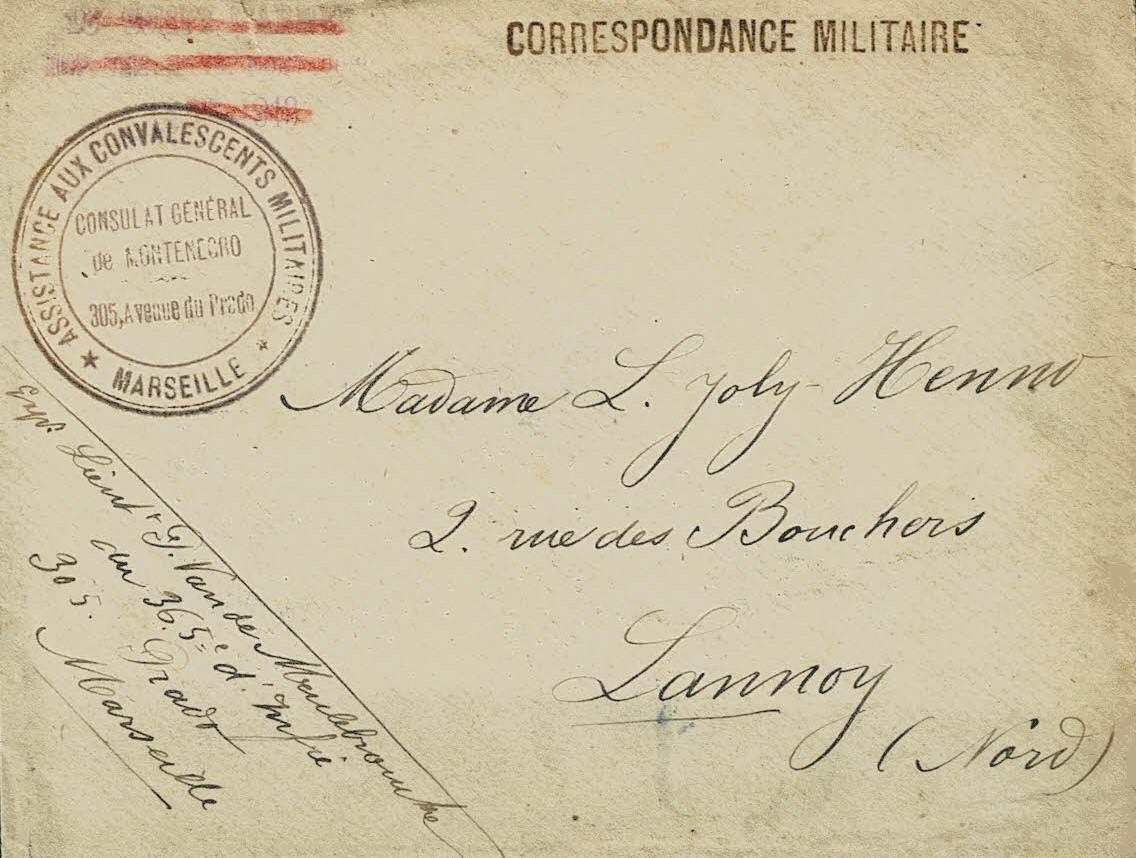 CORRESPONDANCE MILITAIRE
ASSISTANCE AUX CONVALESCENTS MILITAIRES
CONSULAT GÉNÉRAL
de MONTENEGRO
305, Avenue du Prado
★ MARSEILLE ★
Madame L. Joly-Henno
2. rue des Bouchers
Lannoy
(Nord)
Expr Lieut t G. Van de Meulebroucke
du 365e d'Infie
305. Prado
Marseille